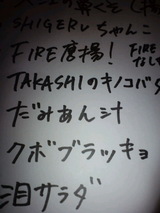 SHIGERUちゃんこ
FIRE唐揚！ FIRE
TAKASHIのキノコバタ
だみあん汁
クボブラッキョ
泪サラダ